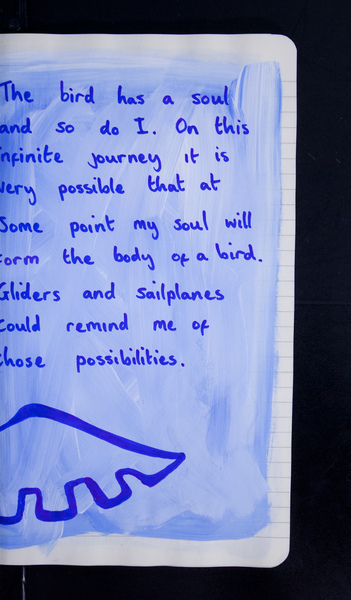 The bird has a soul
and so do I. On this
infinite journey it is
very possible that at
some point my soul will
form the body of a bird.
Gliders and sailplanes
could remind me of
those possibilities.